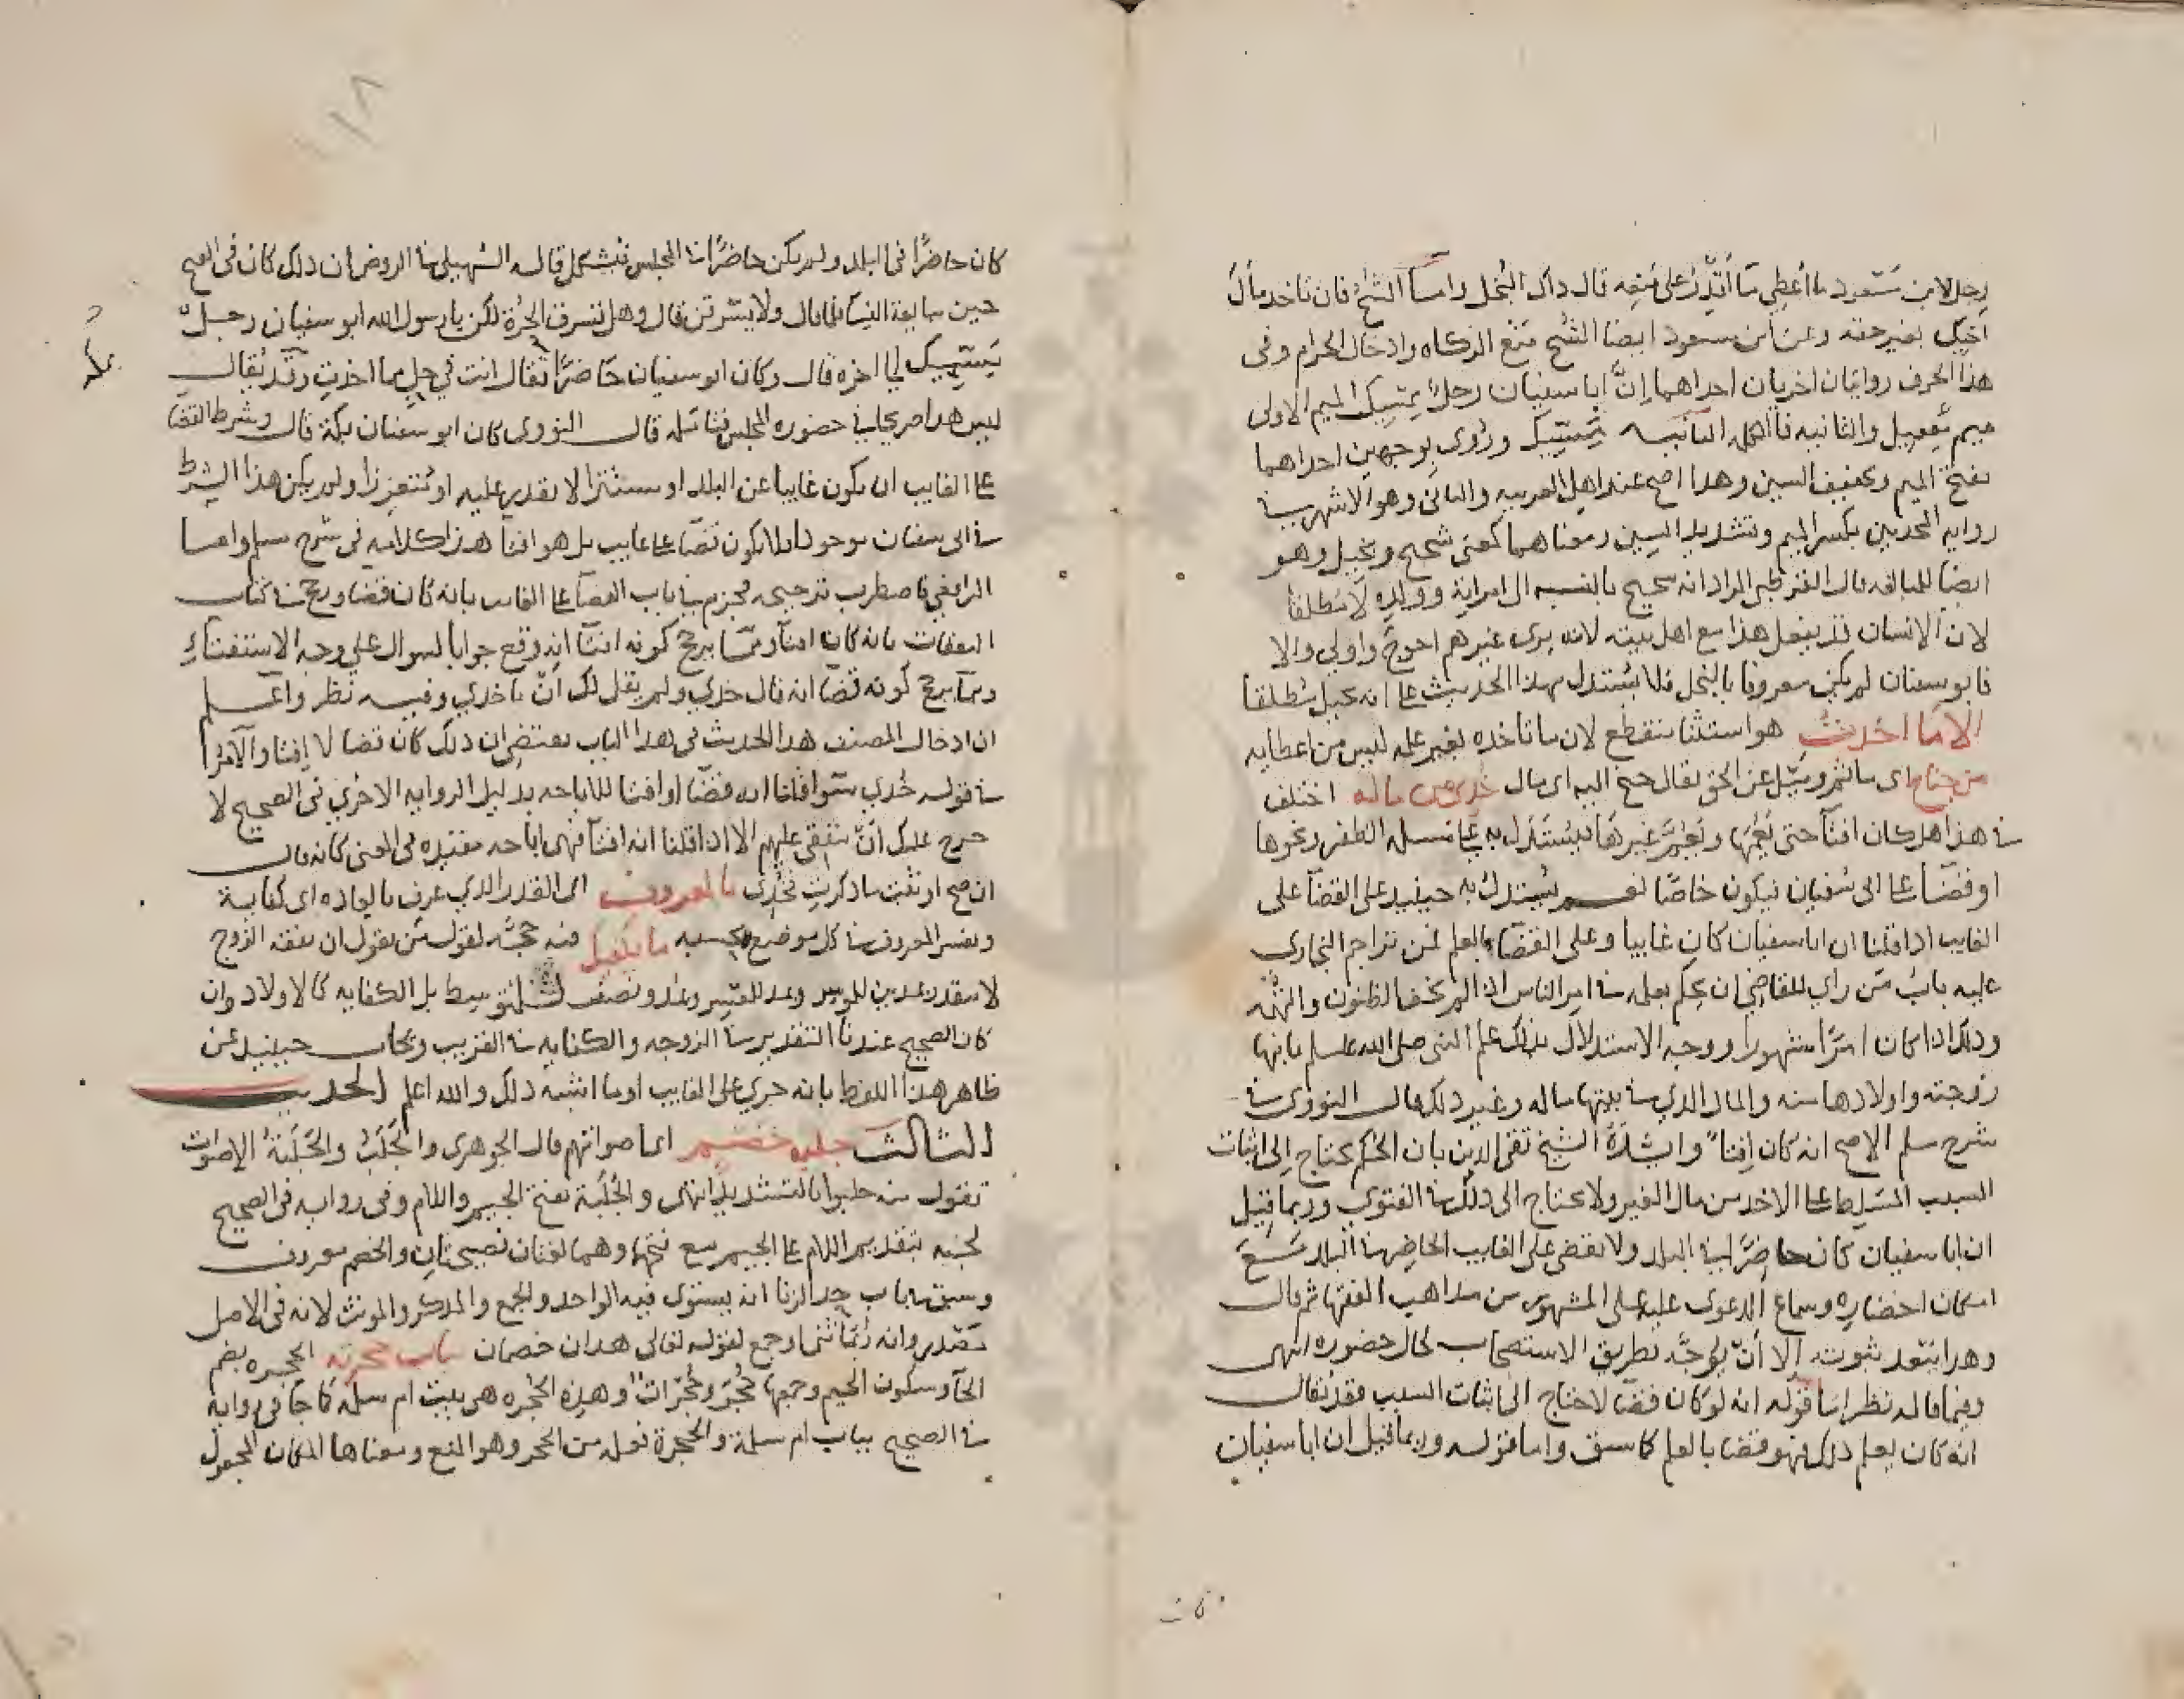 رجل لابن مسعود ما أعطي ما أقدر على منعه قال ذاك البخل واما الشح فان تاخذ مال
اخيك بغير حقه وعن ابن مسعود ايضا الشح منع الزكاه وادخال الحرام وفي
هذا الحرف روايتان اخريان احداهما إنّ ابا سفيان رجلٌ مسيك الميم الاولى
ميم فعيل والثانيه فا الكلمه الثانيه مسيك وروى بوجهين احداهما
بفتح الميم وتخفيف السين وهذا اصح عند اهل العربيه والثاني وهو الاشهر في
روايه المحدثين بكسر الميم وتشديد السين ومعناهما كمعنى شحيح وبخيل وهو
ايضا للمبالغه قال القرطبي المراد انه شحيح بالنسبه الى امراته وولده لا مطلقا
لان الانسان قد يفعل هذا مع اهل بيته لانه يرى غيرهم احوج واولى والا
فابو سفيان لم يكن معروفا بالبخل فلا يستدل بهذا الحديث على انه بخيل مطلقا
الا ما اخذت هو استثنا منقطع لان ما تاخذه بغير علمه ليس من اعطايه
من جناح اى ما اثم وميل عن الحق يقال جنح اليه اى مال خذي من ماله اختلف
في هذا هل كان افتآ حتى يعمها ويعم غيرها فيستدل به على مسله الظفر ونحوها
او قضآ على ابى سفيان فيكون خاصّا نعم يستدل به حينيذ على القضآ على
الغايب اذا قلنا ان ابا سفيان كان غايبا وعلى القضآ بالعلم فمن تراجم البخارى
عليه باب من راى للقاضي ان يحكم بعلمه في امر الناس اذا لم يخف الظنون والتهمه
وذلك اذا كان امرًا مشهورا ووجه الاستدلال بذلك علم النبى صلى الله عليه وسلم بانها
زوجته واولادها منه والمال الذي في بيتها ماله وغير ذلك قال النووى في
شرح مسلم الاصح انه كان إفتاً وايده الشيخ تقى الدين بان الحكم يحتاج الى اثبات
السبب المسلط على الاخذ من مال الغير ولا يحتاج الى ذلك في الفتوى وربما قيل
ان ابا سفيان كان حاضرًا في البلد ولا يقضى على الغايب الحاضر في البلد مع
امكان احضاره وسماع الدعوى عليه على المشهور من مذاهب الفقها ثم قال
وهذا يبعد ثبوته الا أن يوجد بطريق الاستصحاب لحال حضوره انتهى
وفيما قاله نظر اما قوله انه لو كان قضا لاحتاج الى اثبات السبب فقد يقال
انه كان يعلم ذلك فهو قضا بالعلم كما سبق واما قوله وربما قيل ان ابا سفيان
كان
كان حاضرًا في البلد ولم يكن حاضرًا في المجلس فيشكل قال السهيلي في الروض ان ذلك كان في الفتح
حين مبايعة النسا فلما قال ولا يسرقن قال وهل تسرق الحُرة لكن يا رسول الله ابو سفيان رجل
مسيك الى اخره قال وكان ابو سفيان حاضرًا فقال انت في حل مما اخذت وقد يقال
ليس هذا صريحا في حضوره المجلس فتامله قال النووى كان ابو سفيان بمكة قال وشرط القضا
على الغايب ان يكون غايبا عن البلد او مستترا لا يقدر عليه او متعززا ولم يكن هذا الشرط
في ابى سفيان موجودا فلا يكون قضا على غايب بل هو افتآ هذا كلامه في شرح مسلم واما
الرافعي فاضطرب ترجيحه فجزم في باب القضآ على الغايب بانه كان قضا ورجح في كتاب
النفقات بانه كان افتآ ومما يرجح كونه افتآ انه وقع جوابا لسوال على وجه الاستفتاء
ومما يرجح كونه قضا انه قال خذي ولم يقل لك أن تاخذي وفيه نظر واعلم
ان ادخال المصنف هذا الحديث في هذا الباب يقتضي ان ذلك كان قضا لا إفتا والامر
في قوله خُذي سوا قلنا انه قضا او افتا للاباحه بدليل الروايه الاخرى في الصحيح لا
حرج عليك أن تنفقي عليهم الا اذا قلنا انه افتآ فهى اباحه مقيده في المعنى كانه قال
ان صح او ثبت ما ذكرت فخُذي بالمعروف اى القدر الذي عرف بالعاده اى كفاية
ويفسر المعروف في كل موضع بحسبه ما يكفيك فيه حجّه لقول من يقول ان نفقه الزوج
لا تقدر بمدين للموسر ومد للمعسر ومد ونصف للمتوسط بل الكفايه كالاولاد وان
كان الصحيح عندنا التقدير في الزوجه والكفايه في القريب ويجاب حينيذ عن
ظاهر هذا اللفظ بانه جرى على الغالب او ما اشبه ذلك والله اعلم الحديث
الثالث جلبة خصم اى اصواتهم قال الجوهرى والجَلَبُ والجَلَبَةُ الاصوات
تقول منه جلبوا بالتشديد انتهى والجَلَبة بفتح الجيم واللام وفي روايه في الصحيح
لجبه بتقديم اللام على الجيم مع فتحها وهما لغتان فصيحتان والخصم معروف
وسبق في باب حد الزنا انه يستوى فيه الواحد والجمع والمذكر والمونث لانه في الاصل
مصدر وانه ربما ثنى او جمع لقوله تعالى هذان خصمان بباب حجرته الحجره بضم
الحآ وسكون الجيم وجمعها حُجَر وحُجُرات وهذه الحُجره هى بيت ام سلمة كما جا في روايه
في الصحيح بباب ام سلمة والحُجرة فعله من الحجر وهو المنع ومعناها المكان المجعول